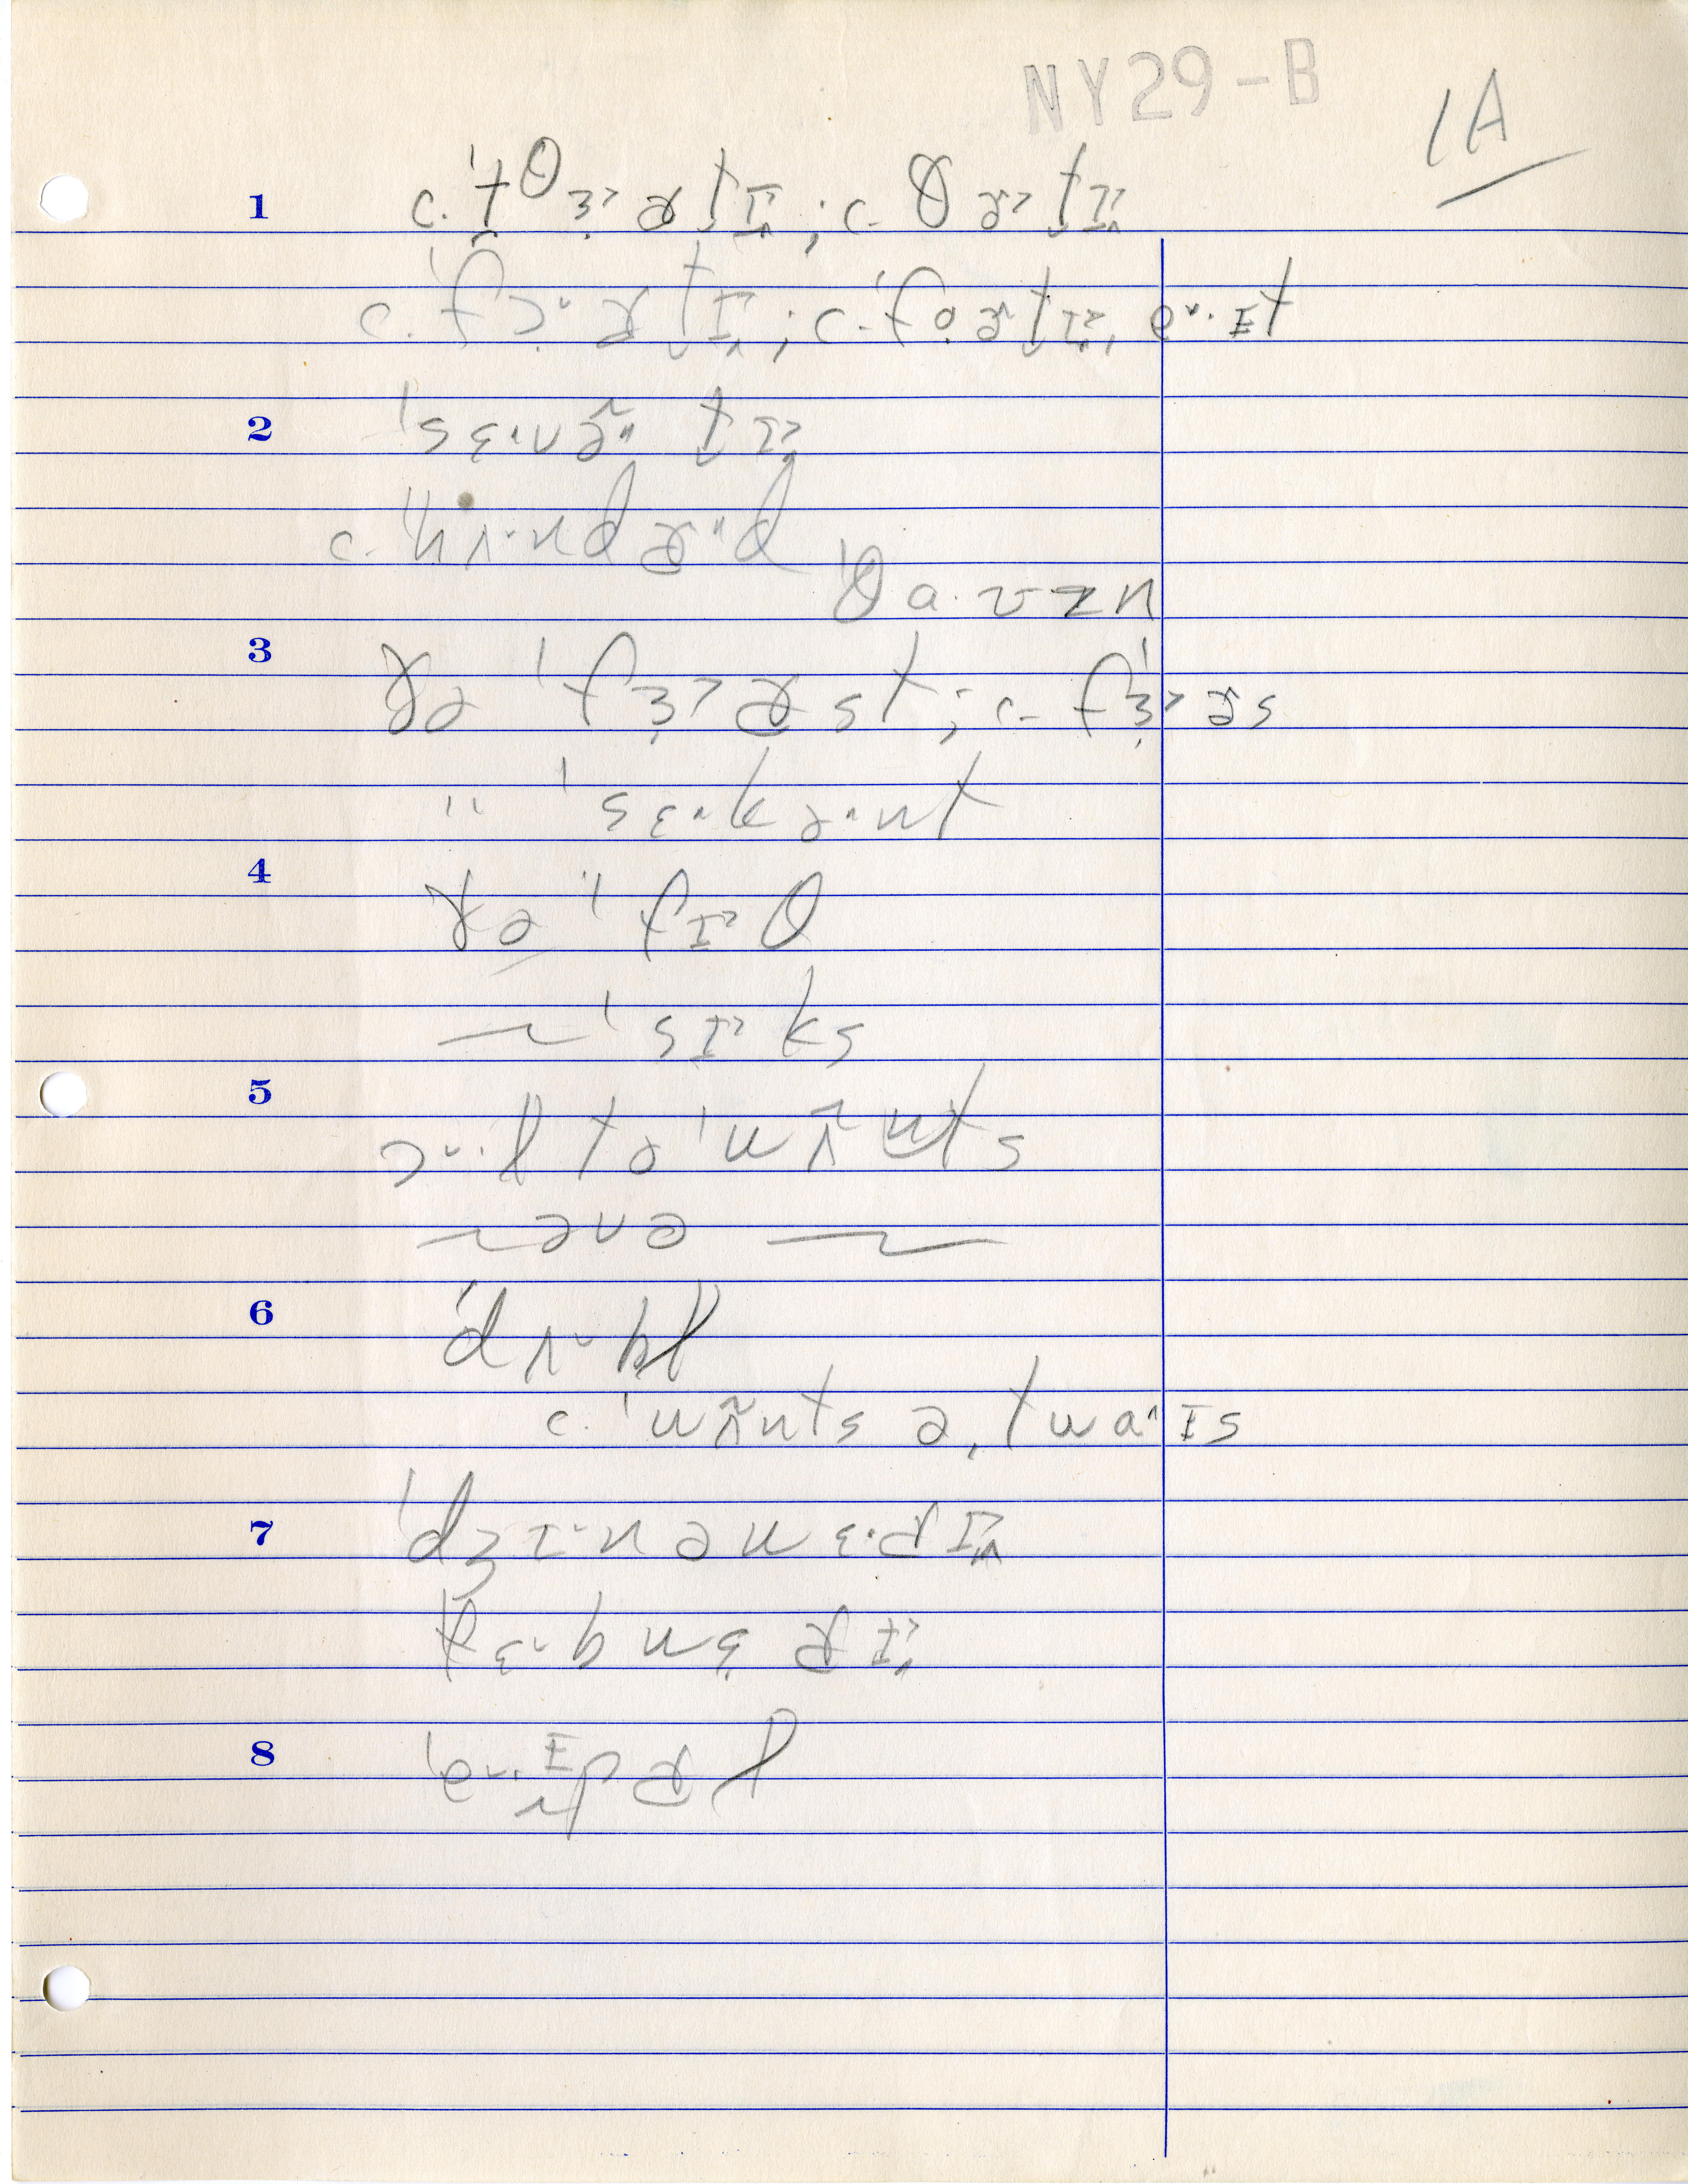 NY29-B
1A
1 c. ˈt̯θɜ˞ɚt̬ɪ; c. θɚt̬ɪ
c. ˈfɔ·ɚt̬ɪ; c. ˈfoɚt̬ɪ, e·ɪt
2 ˈsɛ·və̃n t̬ɪ
c. ˈhʌ·ndɚ·d
ˈθa·ʊzn
3 ðə ˈfɜ˞ɚst; c. fˈɜ˞ɚs
" ˈsɛ·kə·nt
4 ðə ˈfɪ·θ
~ ˈsɪ·ks
5 ɔ·l tə ˈwʌ̃nts
~ əvə ~
6 ˈdʌ·bl
c. ˈwʌ̃nts ə, twa·ɪs
7 ˈdʒɪ·nəwɛ·ɚɪ
ˈfɛ·bwɛɚɪ
8 ˈe·ɪpɚl